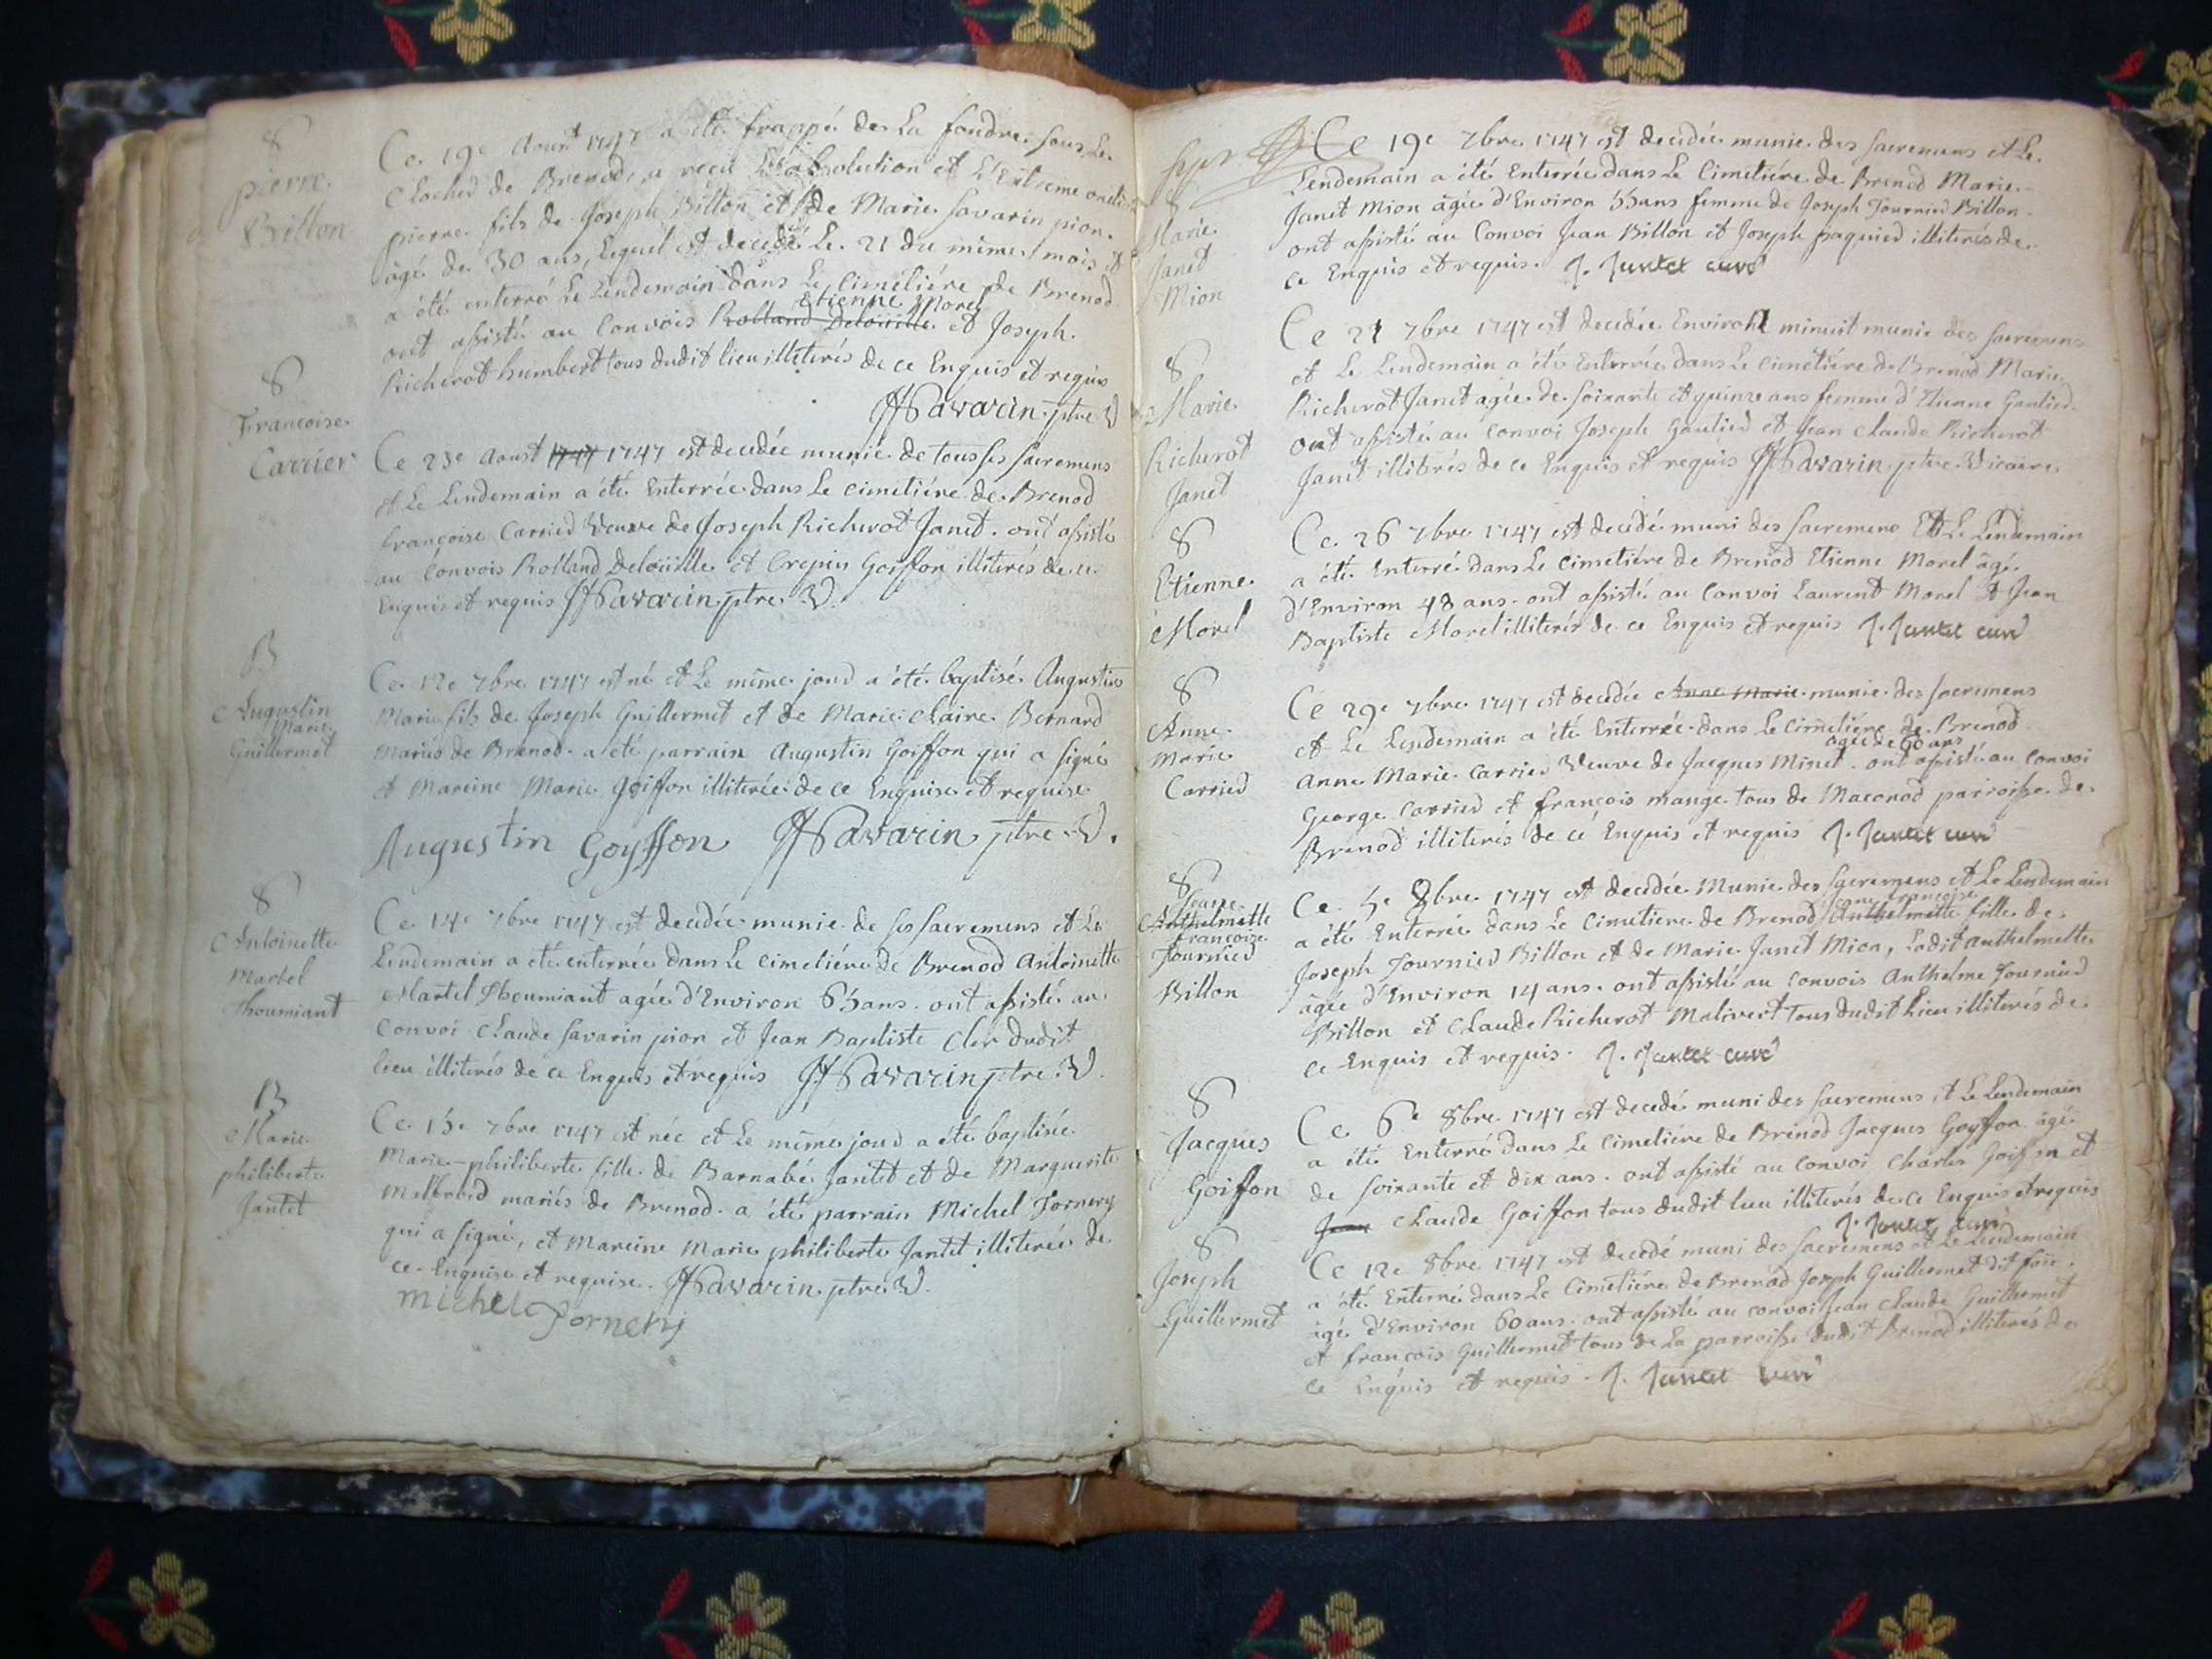 8
pierre
Billon
Ce 19e Aoust 1747 a été frappé de La foudre sous Le
Clocher de Brenod, a recu L'absolution et L'Extreme onction
pierre fils de Joseph Billon et de Marie Savarin pion
âgé de 30 ans, Lequel est decedé Le 21 du même mois et
a été enterré Le Lendemain dans Le Cimetiére de Brenod
Etienne Morel
ont assisté au Convois Rolland Deloüille et Joseph
Richerot humbert tous dudit lieu illiterés de ce Enquis et requis
Savarin ptre V
8
Francoise
Carrier
Ce 23e Aoust 1747 1747 est decedée munie de tous ses sacremens
et Le Lendemain a été Enterrée dans Le cimetiére de Brenod
francoise Carrier Veuve de Joseph Richerot Janet. ont assisté
au Convois Rolland Deloüille et Crepin Goiffon illiterés de ce
Enquis et requis Savarin ptre V.
B
Augustin
Marie
Guillermet
Ce 12e 7bre 1747 est né et Le même jour a été baptisé Augustin
Marie fils de Joseph Guillermet et de Marie Claire Bernard
Mariés de Brenod. a été parrain Augustin Goiffon qui a signé
et Mareine Marie Goiffon illiterée de ce Enquise et requise
Augustin Goyffon Savarin ptre V.
8
Antoinette
Martel
Thoumiant
Ce 14e 7bre 1747 est decedée munie de ses sacremens et Le
Lendemain a été enterrée dans Le cimetiére de Brenod Antoinette
Martel Thoumiant agée d'Environ 65 ans. ont assisté au
Convoi Claude Savarin pion et Jean Baptiste Cler dudit
lieu illiterés de ce Enquis et requis Savarin ptre V.
B
Marie
philiberte
Jantet
Ce 15e 7bre 1747 est née et Le même jour a été baptisée
Marie-philiberte fille de Barnabé Jantet et de Marguerite
mariés de Brenod. a été parrain Michel Fornery
qui a signé, et Mareine Marie philiberte Jantet illiterée de
ce Enquise et requise. Savarin ptre V.
Michel Fornery
8
Marie
Janet
Mion
Ce 19e 7bre 1747 est decedée munie des sacremens et Le
Lendemain a été Enterrée dans Le Cimetiére de Brenod Marie
Janet Mion âgée d'Environ 55 ans femme de Joseph Tournier Billon
ont assisté au Convoi Jean Billon et Joseph paquier illiterés de
ce Enquis et requis. J. Jantet curé
8
Marie
Richerot
Janet
Ce 21 7bre 1747 est decedée Environ minuit munie des sacremens
et Le Lendemain a été Enterrée dans Le cimetiére de Brenod Marie
Richerot Janet agée de soixante et quinze ans femme d'Etienne Gaulier
ont assisté au Convoi Joseph Gaulier et Jean Claude Richerot
Janet illiterés de ce Enquis et requis Savarin ptre Vicaire
8
Etienne
Morel
Ce 26 7bre 1747 est decedé muni des sacremens Et Le Lendemain
a été Enterré dans Le cimetiére de Brenod Etienne Morel âgé
d'Environ 48 ans. ont assisté au Convoi Laurent Morel et Jean
Baptiste Morel illiterés de ce Enquis et requis J. Jantet curé
8
Anne
Marie
Carrier
Ce 29e 7bre 1747 est decedée Anne Marie munie des sacremens
et Le Lendemain a été Enterrée dans Le cimetiére de Brenod
agée de 60 ans
Anne Marie Carrier Veuve de Jacques Minet. ont assisté au Convoi
George Carrier et francois mange tous de Maconod parroisse de
Brenod illiterés de ce Enquis et requis J. Jantet curé
8
Jeanne
Anthelmette
francoise
Tournier
Billon
Ce 5e 8bre 1747 est decedée Munie des sacremens et Le Lendemain
francoise
a été Enterrée dans Le Cimetiere de Brenod Anthelmette fille de
Joseph Tournier Billon et de Marie Janet Mion, Ladit Anthelmette
âgée d'Environ 14 ans. ont assisté au Convois Anthelme Tournier
Billon et Claude Richerot Malivert tous dudit Lieu illiterés de
ce Enquis et requis. J. Jantet curé
8
Jacques
Goiffon
Ce 6e 8bre 1747 est decedé muni des sacremens et Le Lendemain
a été Enterré dans Le Cimetiére de Brenod Jacques Goyffon âgé
de soixante et dix ans. ont assisté au Convoi Charles Goiffon et
Jean Claude Goiffon tous dudit lieu illiterés de ce Enquis et requis
J. Jantet curé
8
Joseph
Guillermet
Ce 12e 8bre 1747 est decedé muni des sacremens et Le Lendemain
a été Enterré dans Le Cimetiére de Brenod Joseph Guillermet dit
âgé d'Environ 60 ans. ont assisté au convoi Jean Claude Guillermet
et francois Guillermet tous de La parroisse dudit Brenod illiterés de
ce Enquis et requis. J. Jantet curé